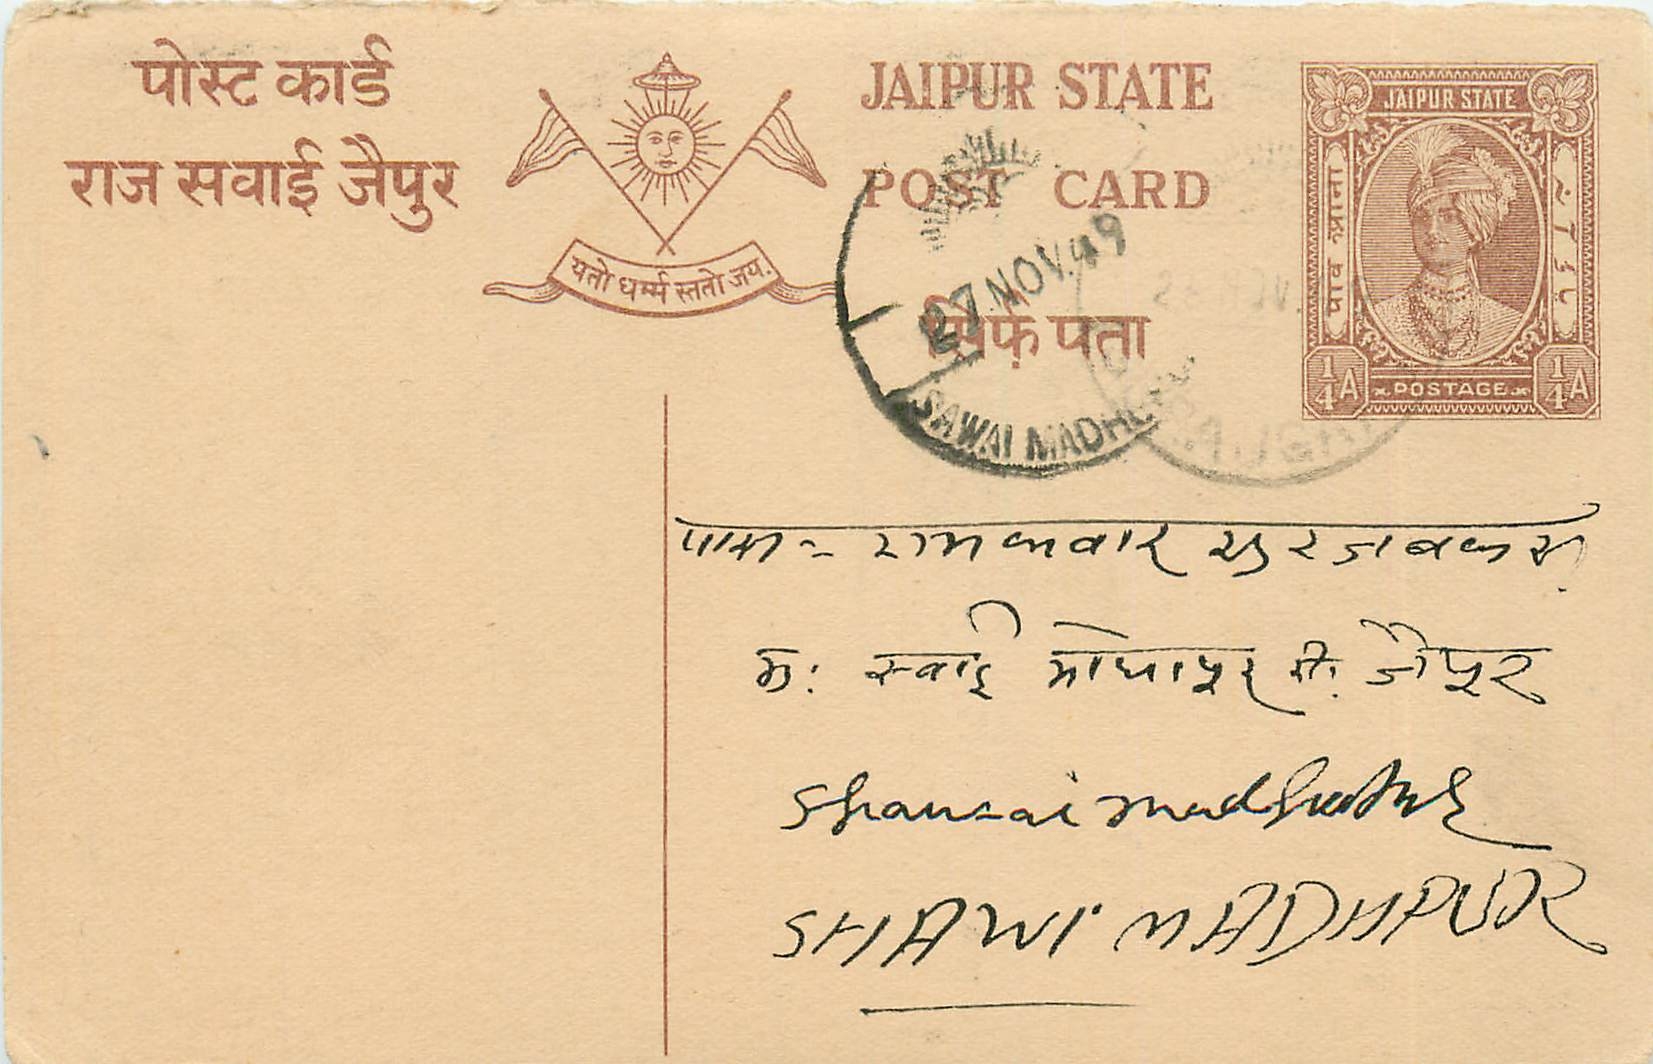 पोस्ट कार्ड
राज सवाई जैपुर
यतो धर्म्म स्ततो जय.
JAIPUR STATE
POST CARD
सिर्फ़ पता
JAIPUR STATE
पाव आना
1/4 A POSTAGE 1/4 A
27 NOV. 49
SAWAI MADHO
रामकवार सुरजबकस
स्वाई माधोपुर जैपुर
SHAWI MADHPUR